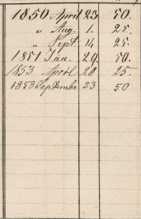 1850 April 23. 50.
" Aug. 1. 25.
" Sept. 14 25.
1851 Jan. 29. 50.
1853 April 28 25.
1853 September 23 50